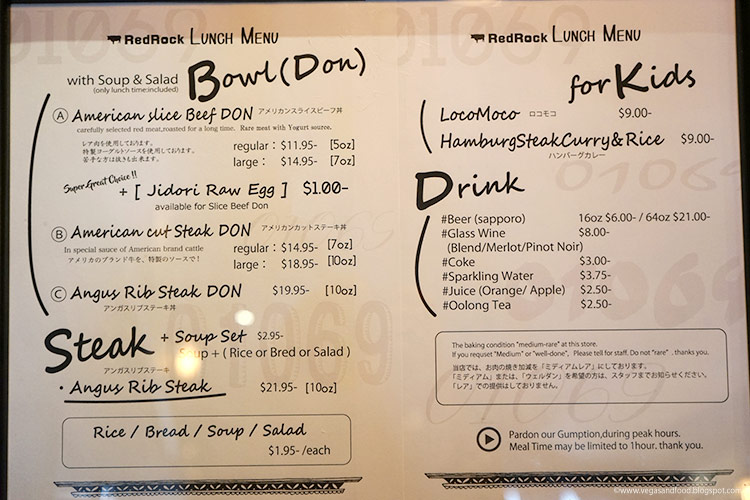 RedRock LUNCH MENU
with Soup & Salad
(only lunch time:included)
Bowl(Don)
Ⓐ American slice Beef DON アメリカンスライスビーフ丼
carefully selected red meat,roasted for a long time. Rare meat with Yogurt source.
レア肉を使用しております。
特製ヨーグルトソースを使用しております。
苦手な方は抜きも出来ます。
regular : $11.95- [5oz]
large : $14.95- [7oz]
Super Great Choice!!
+ [ Jidori Raw Egg ] $1.00-
available for Slice Beef Don
Ⓑ American cut Steak DON アメリカンカットステーキ丼
In special sauce of American brand cattle
アメリカのブランド牛を、特製のソースで!
regular : $14.95- [7oz]
large : $18.95- [10oz]
Ⓒ Angus Rib Steak DON $19.95- [10oz]
アンガスリブステーキ丼
Steak + Soup Set $2.95-
Soup + ( Rice or Bred or Salad )
アンガスリブステーキ
・Angus Rib Steak $21.95- [10oz]
Rice / Bread / Soup / Salad
$1.95- /each
RedRock LUNCH MENU
for Kids
LocoMoco ロコモコ $9.00-
HamburgSteakCurry&Rice $9.00-
ハンバーグカレー
Drink
#Beer (sapporo) 16oz $6.00- / 64oz $21.00-
#Glass Wine $8.00-
(Blend/Merlot/Pinot Noir)
#Coke $3.00-
#Sparkling Water $3.75-
#Juice (Orange/ Apple) $2.50-
#Oolong Tea $2.50-
The baking condition "medium-rare" at this store.
If you requset "Medium" or "well-done", Please tell for staff. Do not "rare" . thanks you.
当店では、お肉の焼き加減を「ミディアムレア」にしております。
「ミディアム」または、「ウェルダン」を希望の方は、スタッフまでお知らせください。
「レア」での提供はしておりません。
Pardon our Gumption,during peak hours.
Meal Time may be limited to 1hour. thank you.
©www.vegasandfood.blogspot.com
01069
01069
01069
01069